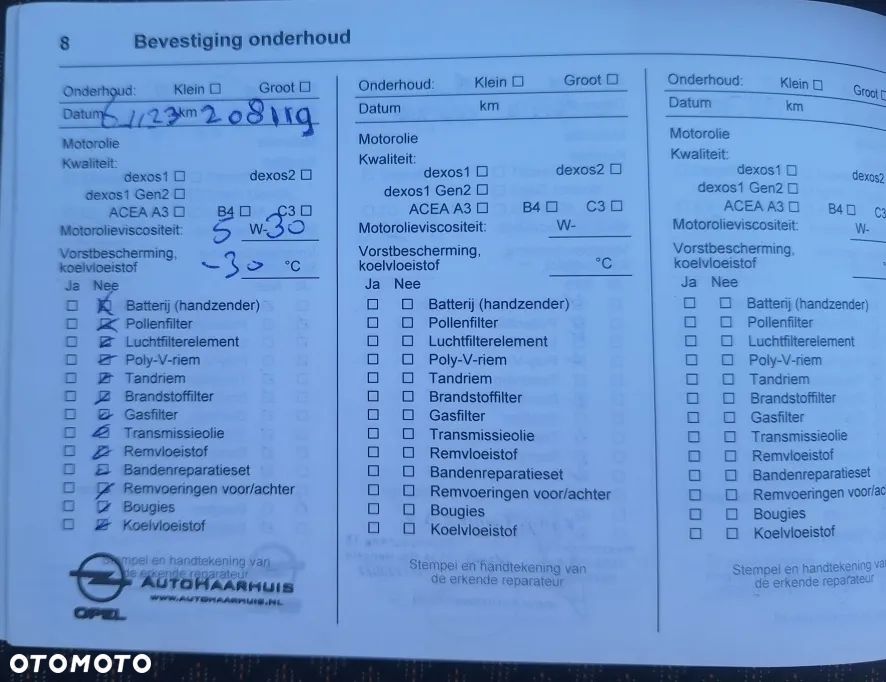 8 Bevestiging onderhoud
Onderhoud: Klein Groot
Datum km 208119
Motorolie
Kwaliteit:
dexos1 dexos2
dexos1 Gen2
ACEA A3 B4 C3
Motorolieviscositeit: 5 W-30
Vorstbescherming,
koelvloeistof -30 °C
Ja Nee
Batterij (handzender)
Pollenfilter
Luchtfilterelement
Poly-V-riem
Tandriem
Brandstoffilter
Gasfilter
Transmissieolie
Remvloeistof
Bandenreparatieset
Remvoeringen voor/achter
Bougies
Koelvloeistof
Stempel en handtekening van
de erkende reparateur
AUTOHAARHUIS
WWW.AUTOHAARHUIS.NL
OPEL
Onderhoud: Klein Groot
Datum km
Motorolie
Kwaliteit:
dexos1 dexos2
dexos1 Gen2
ACEA A3 B4 C3
Motorolieviscositeit: W-
Vorstbescherming,
koelvloeistof °C
Ja Nee
Batterij (handzender)
Pollenfilter
Luchtfilterelement
Poly-V-riem
Tandriem
Brandstoffilter
Gasfilter
Transmissieolie
Remvloeistof
Bandenreparatieset
Remvoeringen voor/achter
Bougies
Koelvloeistof
Stempel en handtekening van
de erkende reparateur
Onderhoud: Klein Groot
Datum km
Motorolie
Kwaliteit:
dexos1 dexos2
dexos1 Gen2
ACEA A3 B4 C3
Motorolieviscositeit: W-
Vorstbescherming,
koelvloeistof
Ja Nee
Batterij (handzender)
Pollenfilter
Luchtfilterelement
Poly-V-riem
Tandriem
Brandstoffilter
Gasfilter
Transmissieolie
Remvloeistof
Bandenreparatieset
Remvoeringen voor/ac
Bougies
Koelvloeistof
Stempel en handtekening va
de erkende reparateur
OTOMOTO